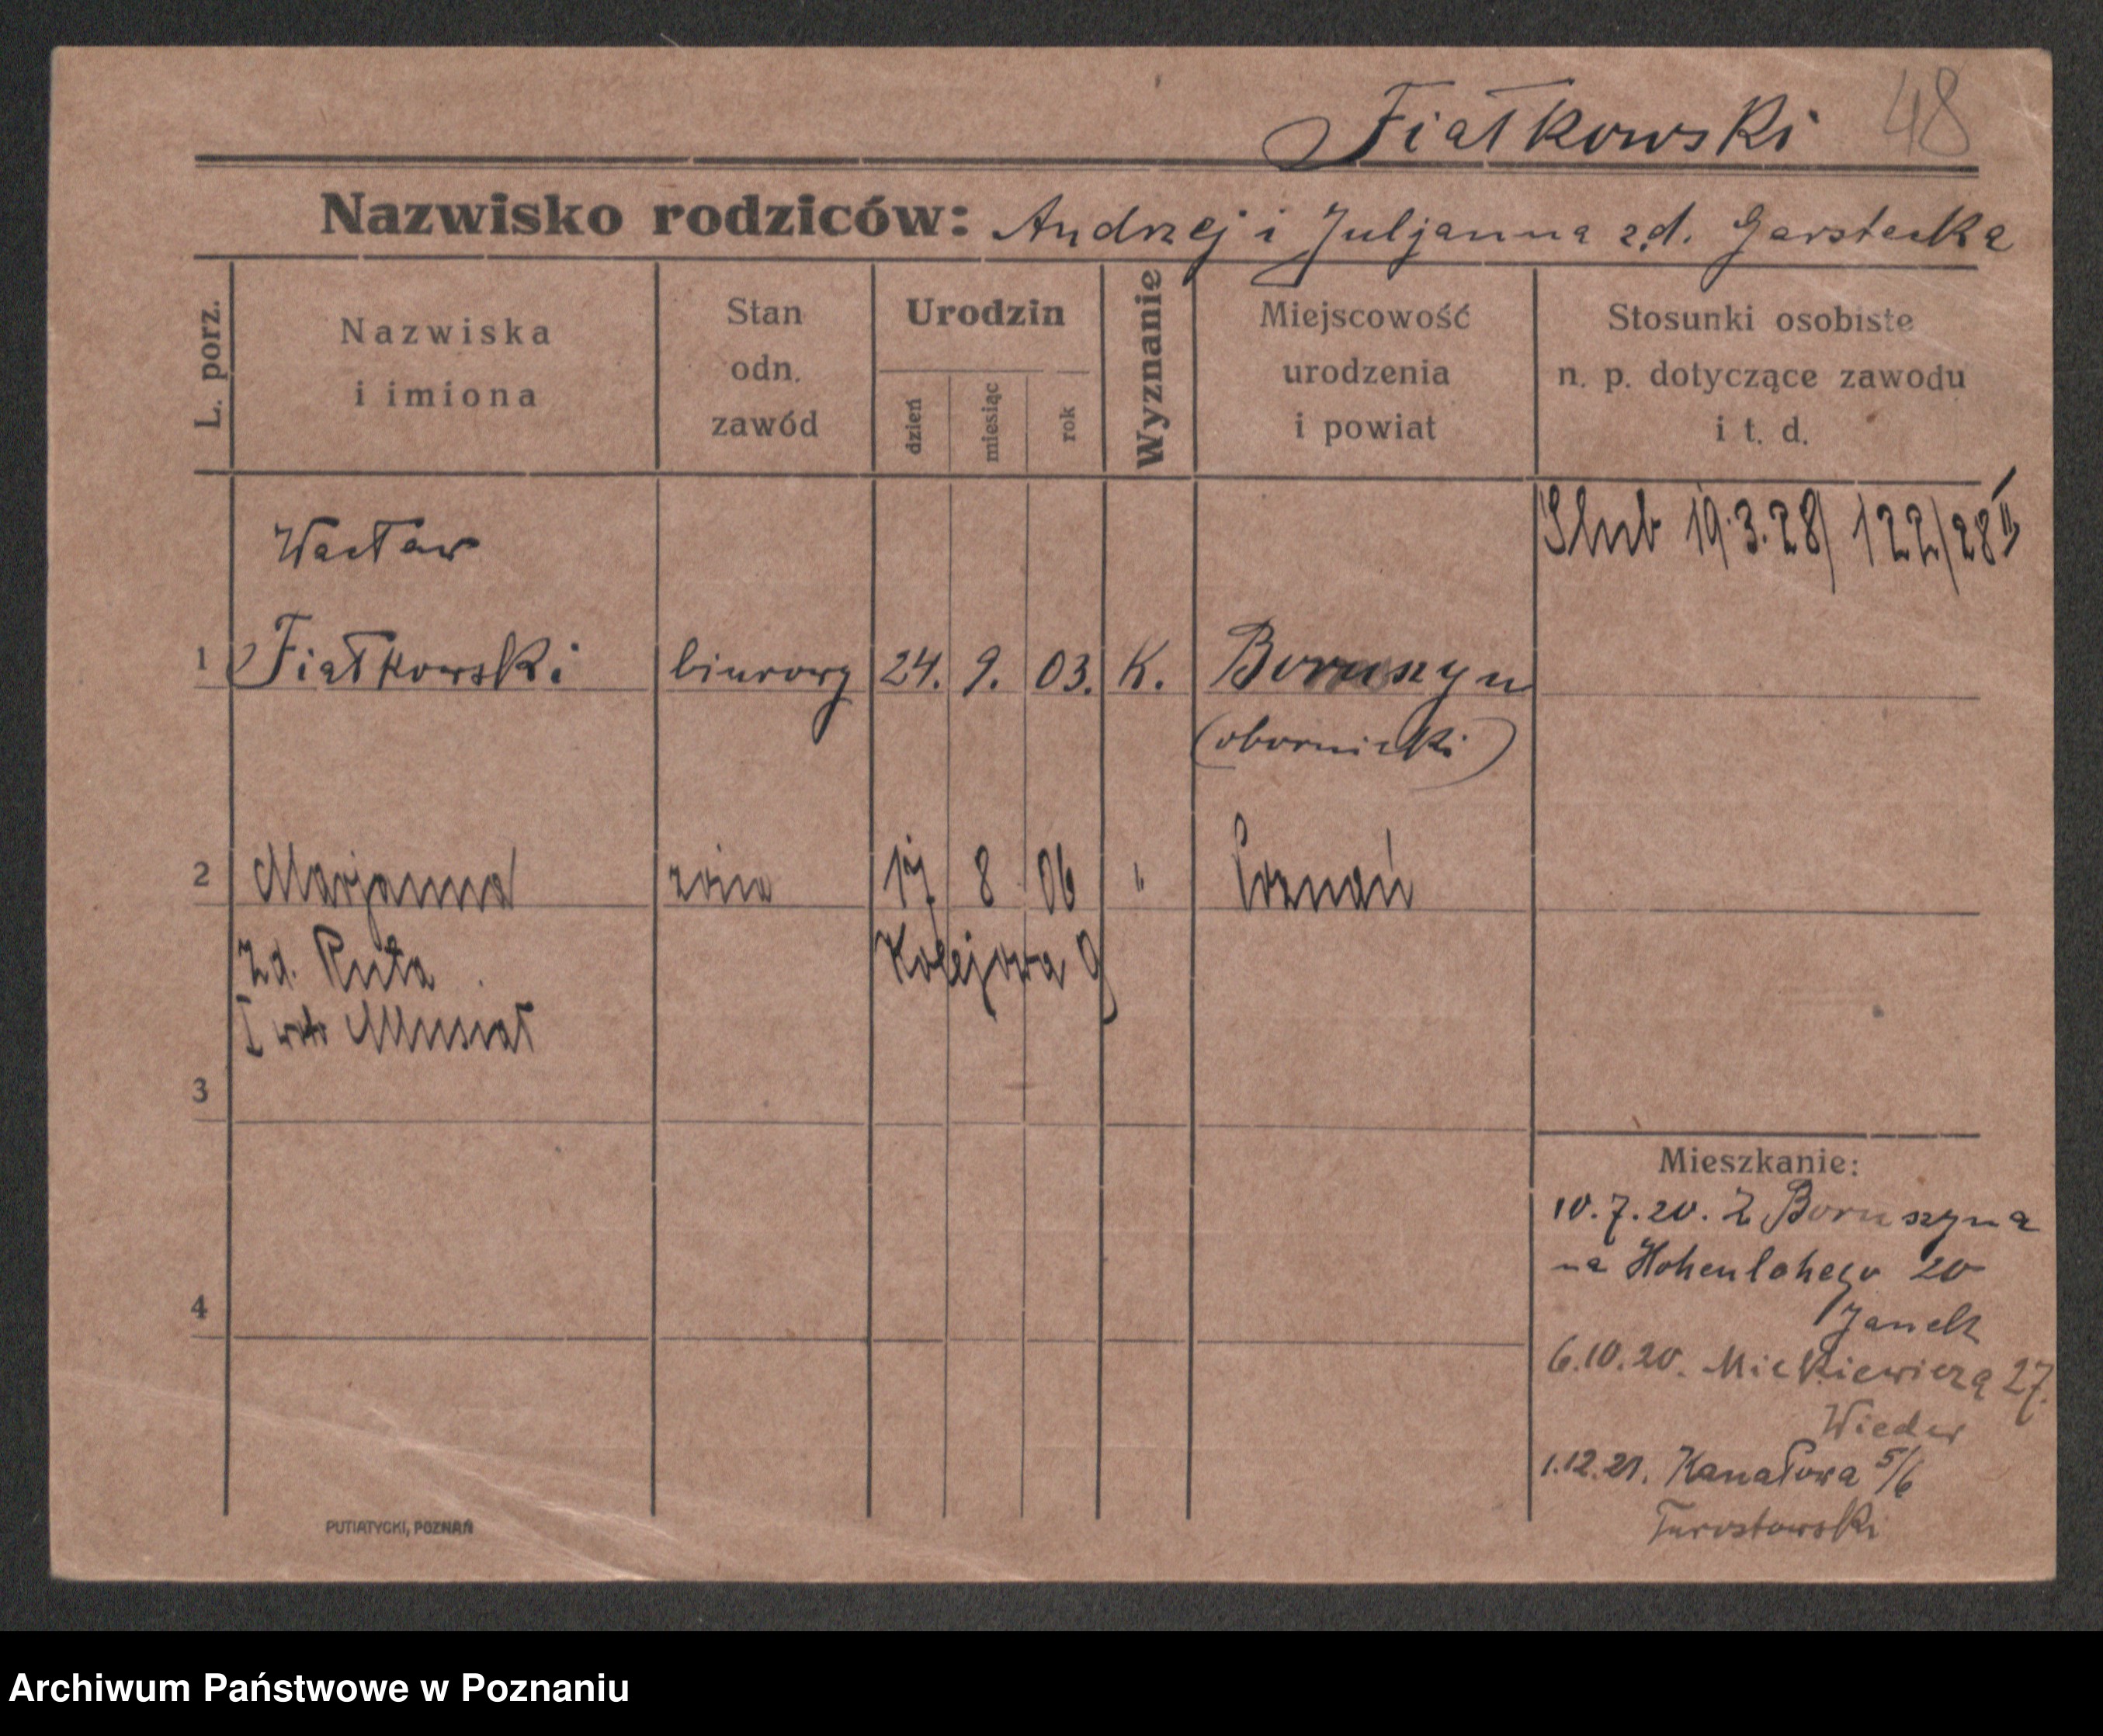 Fiałkowski 48
Nazwisko rodziców: Andrzej i Juljanna zd. Garstecka
L. porz.
Nazwiska
i imiona
Stan
odn.
zawód
Urodzin
dzień
miesiąc
rok
Wyznanie
Miejscowość
urodzenia
i powiat
Stosunki osobiste
n. p. dotyczące zawodu
i t. d.
Ślub 19.3.28 / 122/28 II
Wacław
1 Fiałkowski biurowy 24. 9. 03. K. Boruszyn
(obornicki)
2 Marjanna żona 17 8 06 " Poznań
zd. Ruta Kolejowa 9
I voto Musiał
3
Mieszkanie:
10.7.20. Z Boruszyna
na Hohenlohego 20
Janek
4
6.10.20. Mickiewicza 27.
Wieder
1.12.21. Kanałowa 5/6
Turostowski
PUTIATYCKI, POZNAŃ
Archiwum Państwowe w Poznaniu